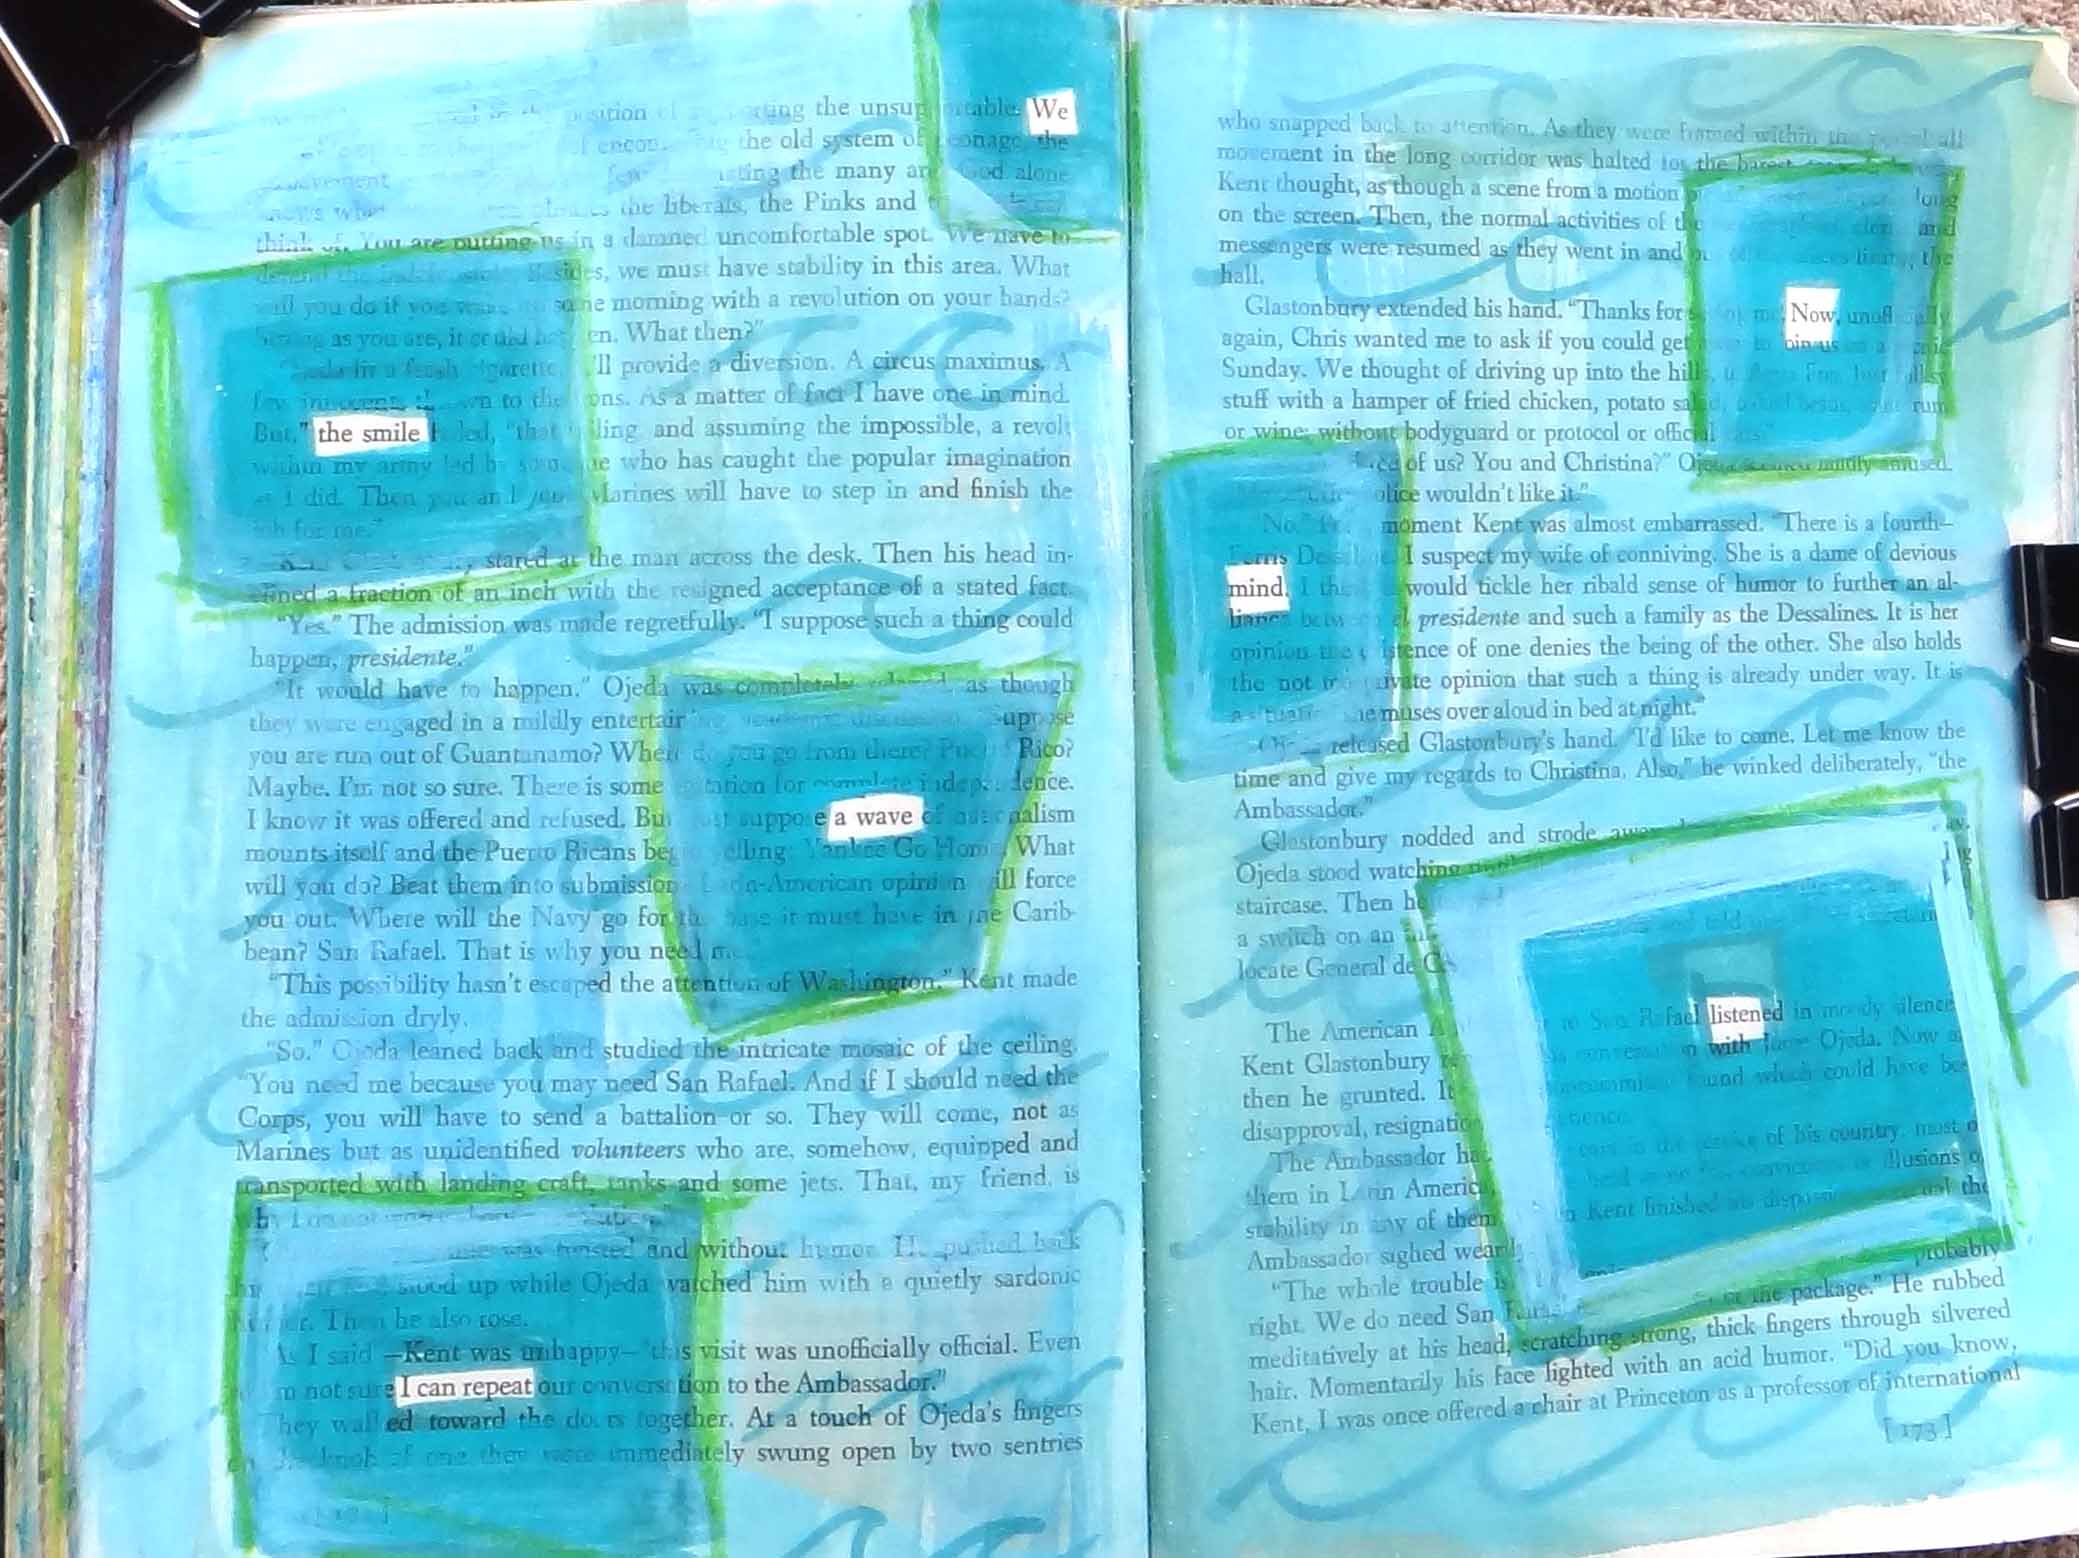 the unsup table. We
the old system of the
the many and alone
the liberals, the Pinks and
think of. You are putting us in a damned uncomfortable spot. We have to
we must have stability in this area. What
will you do if you some morning with a revolution on your hands?
as you are, it could en. What then?"
'll provide a diversion. A circus maximus. A
to the ons. As a matter of fact I have one in mind.
But," the smile "that and assuming the impossible, a revolt
within my army led by who has caught the popular imagination
as I did. Then you and your Marines will have to step in and finish the
job for me."
stared at the man across the desk. Then his head in-
clined a fraction of an inch with the resigned acceptance of a stated fact.
"Yes." The admission was made regretfully. "I suppose such a thing could
happen, presidente."
"It would have to happen." Ojeda was completely relaxed, as though
they were engaged in a mildly entertaining, academic discussion. "Suppose
you are run out of Guantanamo? Where do you go from there? Puerto Rico?
Maybe. I'm not so sure. There is some for complete independence.
I know it was offered and refused. But just suppose a wave of nationalism
mounts itself and the Puerto Ricans begin yelling: Yankee Go Home. What
will you do? Beat them into submission? Latin-American opinion will force
you out. Where will the Navy go for the base it must have in the Carib-
bean? San Rafael. That is why you need me."
"This possibility hasn't escaped the attention of Washington." Kent made
the admission dryly.
"So." Ojeda leaned back and studied the intricate mosaic of the ceiling.
"You need me because you may need San Rafael. And if I should need the
Corps, you will have to send a battalion or so. They will come, not as
Marines but as unidentified volunteers who are, somehow, equipped and
transported with landing craft, tanks and some jets. That, my friend, is
why I do not
was twisted and without humor. He pushed back
stood up while Ojeda watched him with a quietly sardonic
Then he also rose.
"As I said—Kent was unhappy—"this visit was unofficially official. Even
I'm not sure I can repeat our conversation to the Ambassador."
They walked toward the doors together. At a touch of Ojeda's fingers
the knob of one they were immediately swung open by two sentries
who snapped back to attention. As they were framed within the
movement in the long corridor was halted for the barest
Kent thought, as though a scene from a motion long
on the screen. Then, the normal activities of the and
messengers were resumed as they went in and out of the the
hall.
Glastonbury extended his hand. "Thanks for me. Now, unofficially
again, Chris wanted me to ask if you could get join us on a picnic
Sunday. We thought of driving up into the hills,
stuff with a hamper of fried chicken, potato salad, rum
or wine; without bodyguard or protocol or official
of us? You and Christina?" Ojeda seemed mildly amused.
police wouldn't like it."
"No." For a moment Kent was almost embarrassed. "There is a fourth—
Ferris Dessaline. I suspect my wife of conniving. She is a dame of devious
mind. I think it would tickle her ribald sense of humor to further an al-
liance between el presidente and such a family as the Dessalines. It is her
opinion the existence of one denies the being of the other. She also holds
the not too private opinion that such a thing is already under way. It is
a situation she muses over aloud in bed at night."
Ojeda released Glastonbury's hand. "I'd like to come. Let me know the
time and give my regards to Christina. Also," he winked deliberately, "the
Ambassador."
Glastonbury nodded and strode away
Ojeda stood watching
staircase. Then he
a switch on an and told
locate General de
The American to San Rafael listened in moody silence
Kent Glastonbury his conversation with Juan Ojeda. Now and
then he grunted. It noncommittal sound which could have been
disapproval, resignation
The Ambassador had in the service of his country, most of
them in Latin America. illusions of
stability in any of them. Kent finished his the
Ambassador sighed wearily.
"The whole trouble is probably
right. We do need San the package." He rubbed
meditatively at his head, scratching strong, thick fingers through silvered
hair. Momentarily his face lighted with an acid humor. "Did you know,
Kent, I was once offered a chair at Princeton as a professor of international
[173]